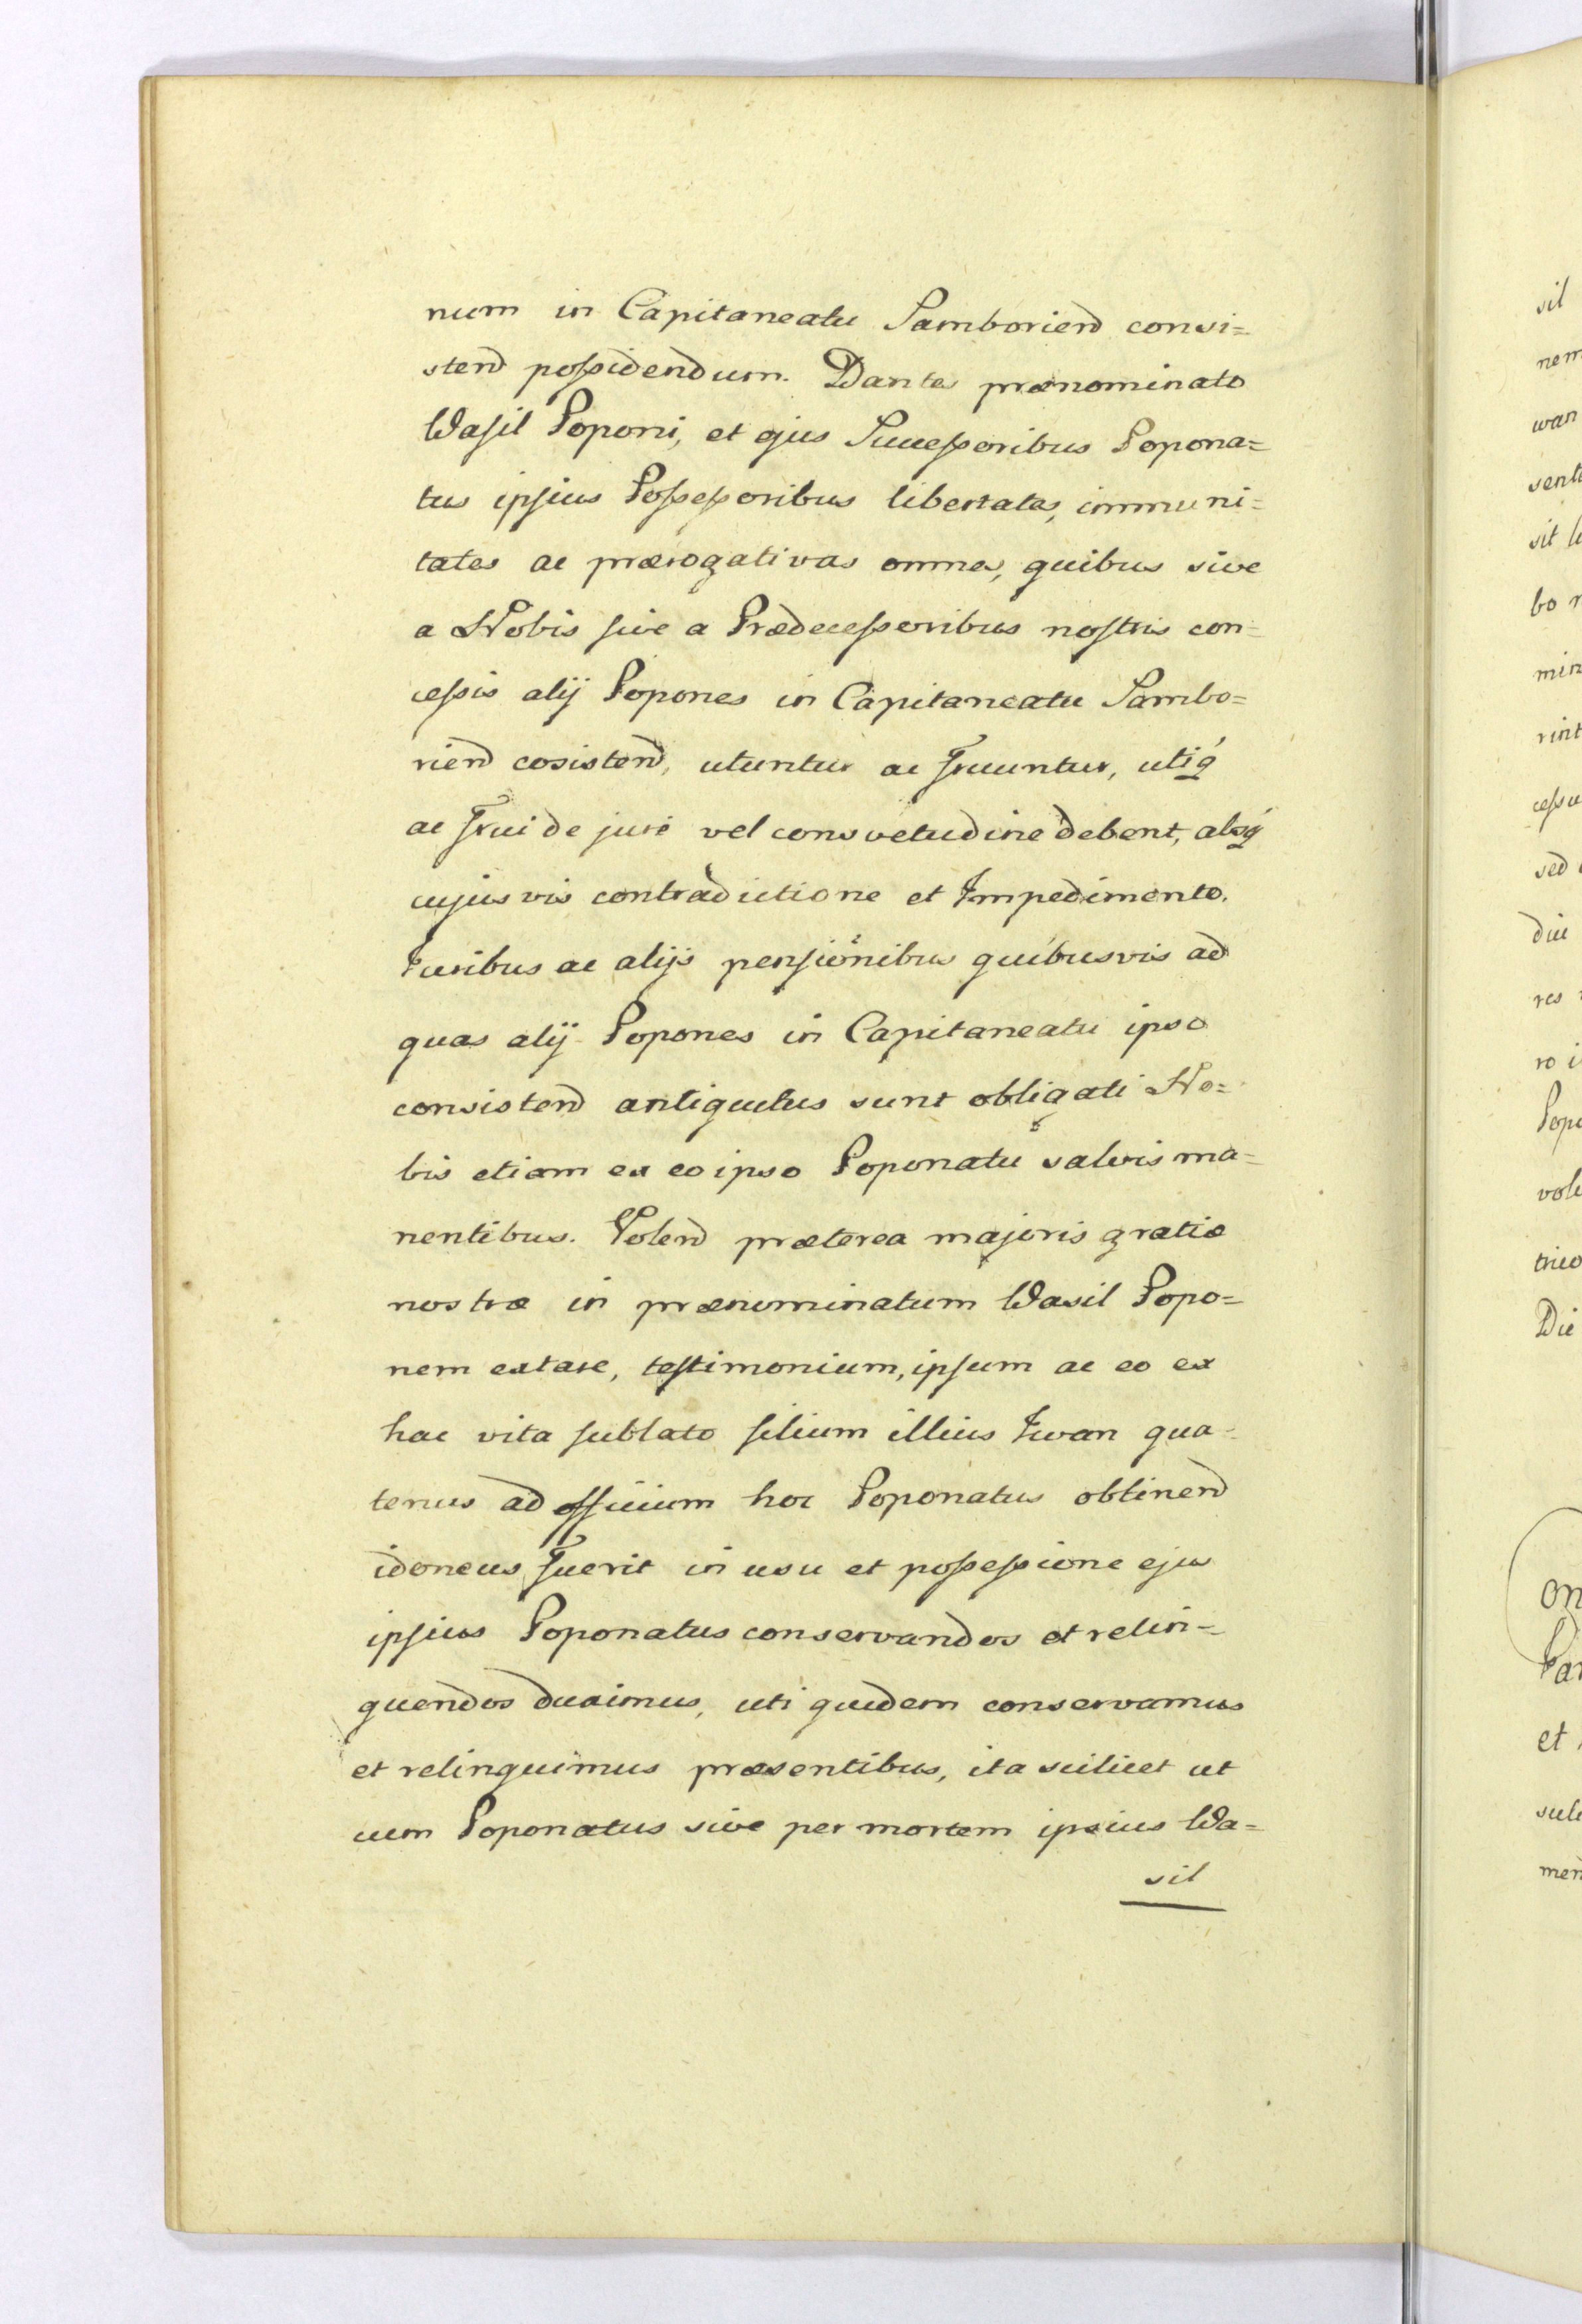 num in Capitaneatu Samborien consi=
sten possidendum. Dantes prænominato
Wasil Poponi, et ejus Successoribus Popona=
tus ipsius Possessoribus libertates, immuni=
tates ac prærogativas omnes, quibus sive
a Nobis sive a Prædecessoribus nostris con=
cessis alij Popones in Capitaneatu Sambo=
rien cosisten, utuntur ac fruuntur, utiq
ac frui de jure vel consvetudine debent, absq
cujusvis contradictione et Impedimento.
Juribus ac alijs pensionibus quibusvis ad
quas alij Popones in Capitaneatu ipso
consisten antiquitus sunt obligati No=
bis etiam ex eo ipso Poponatu salvis ma=
nentibus. Volen præterea majoris gratiæ
nostræ in prænominatum Wasil Popo=
nem extare, testimonium, ipsum ac eo ex
hac vita sublato filium illius Iwan qua=
tenus ad officium hoc Poponatus obtinen
idoneus fuerit in usu et possessione ejus
ipsius Poponatus conservandos et relin=
quendos duximus, uti quidem conservamus
et relinquimus præsentibus, ita scilicet ut
cum Poponatus sive per mortem ipsius Wa=
sil
sil
nem
wan
sit
bo
min
rint
sed
dui
res
ro
Die
et